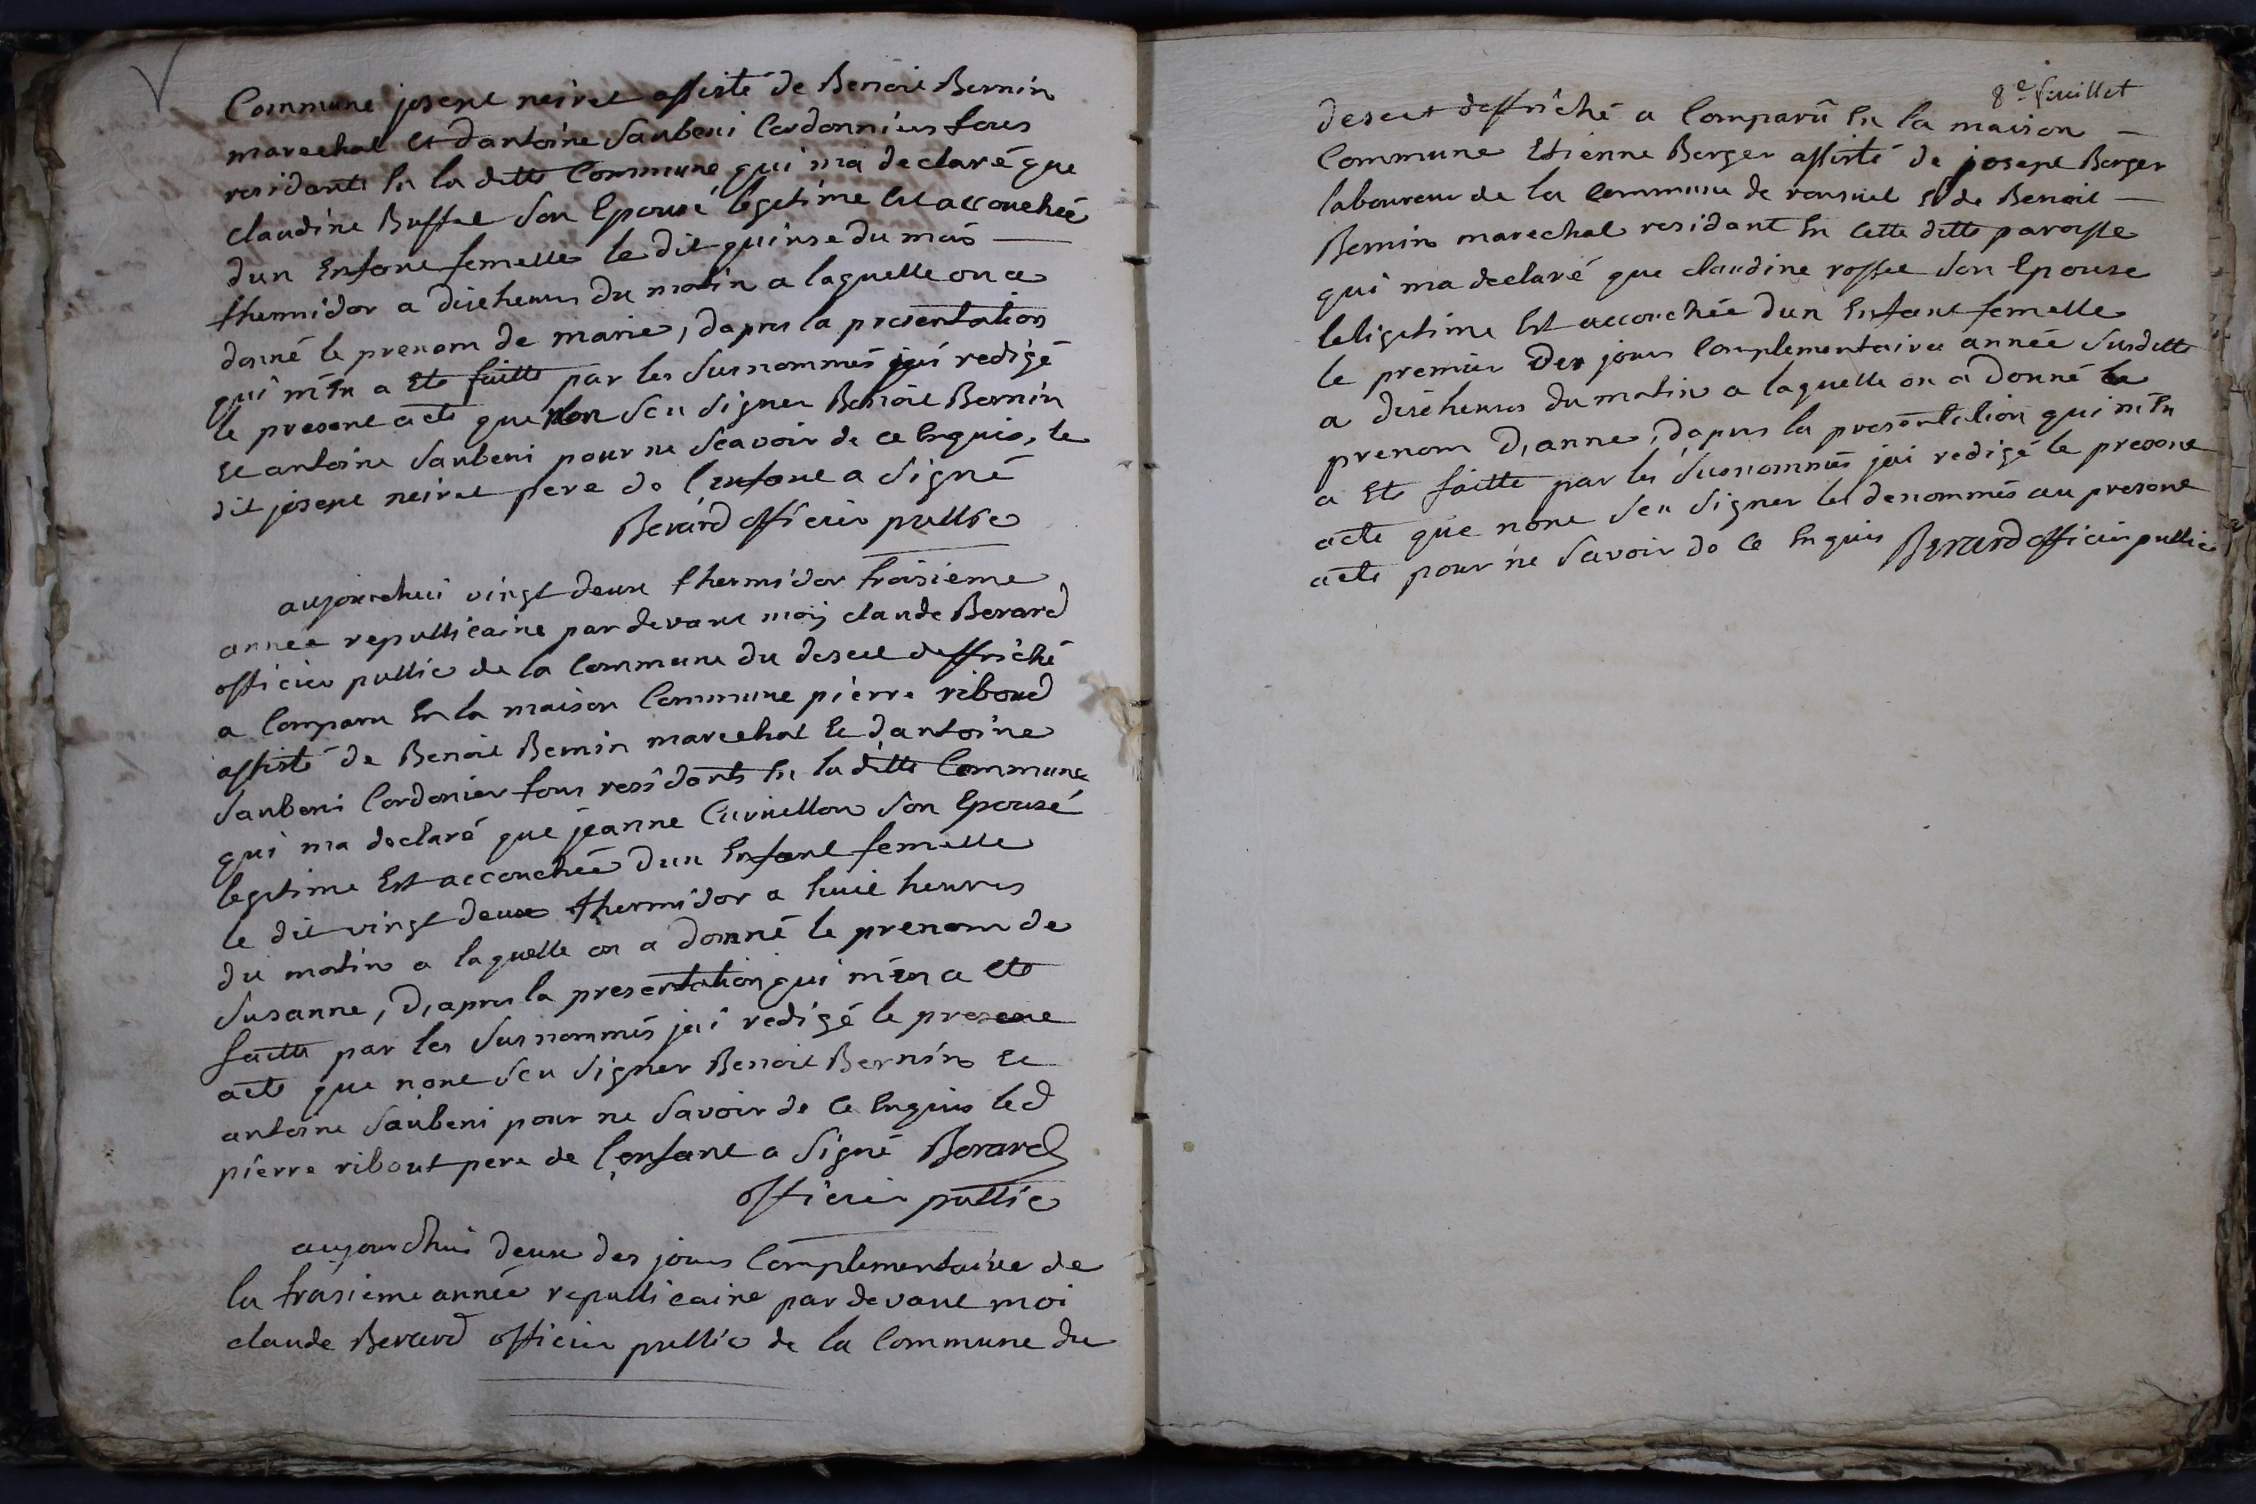 Commune joseph neiret assisté de Benoit Bernin
marechal et dantoine Saubeni Cordonniers tous
residants En la ditte Commune qui ma declaré que
claudine Buffet Son Epousé legetime Est accouchée
dun Enfant femelle le dit quinse du mois
thermidor a dixheures du matin a laquelle on a
donné le prenom de marie, dapres la presentation
qui m'En a Ete faitte par les Surnommés jai redigé
le present acte que non Seu Signer Benoit Bernin
Et antoine Saubeni pour ne Scavoir de ce Enquis, le
dit joseph neiret pere de l'enfant a Signé
Berard officier public
aujourdhui vingt deux thermidor troisieme
annee republicaine par devant moi claude Berard
officier public de la Commune du desert deffriché
a Comparu En la maison Commune pierre riboud
assisté de Benoit Bernin marechal Et dantoine
Saubeni Cordonier tous residants En la ditte Commune
qui ma declaré que jeanne Son Epousé
legitime Est accouchée dun Enfant femelle
le dit vingt deux thermidor a huit heures
du matin a laquelle on a donné le prenom de
Susanne, D,apres la presentation qui m'en a Ete
faitte par les Surnommés jai redigé le present
acte que nont Seu Signer Benoit Bernin Et
antoine Saubeni pour ne Savoir de ce Enquis led
pierre ribout pere de l'enfant a Signé Berard
officier public
aujourdhui deux des jours Complementaires de
la troisieme année republicaine par devant moi
claude Berard officier public de la Commune du
8e feuillet
desert deffriché a Comparû En la maison
Commune Etienne Berger assisté de joseph Berger
laboureur de la Commune de Et de Benoit
Bernin marechal residant En Cette ditte paroisse
qui ma declaré que claudine rosset Son Epouse
leligitime Est accouchée dun Enfant femelle
le premier Des jours Complementaires année Susditte
a dixheures du matin a laquelle on a donné le
prenom D,anne, dapres la presentation qui m'En
a Ete faitte par les Susnommés jai redigé le present
acte que nont Seu Signer les denommés au present
acte pour ne Savoir de Ce Enquis Berard officier public